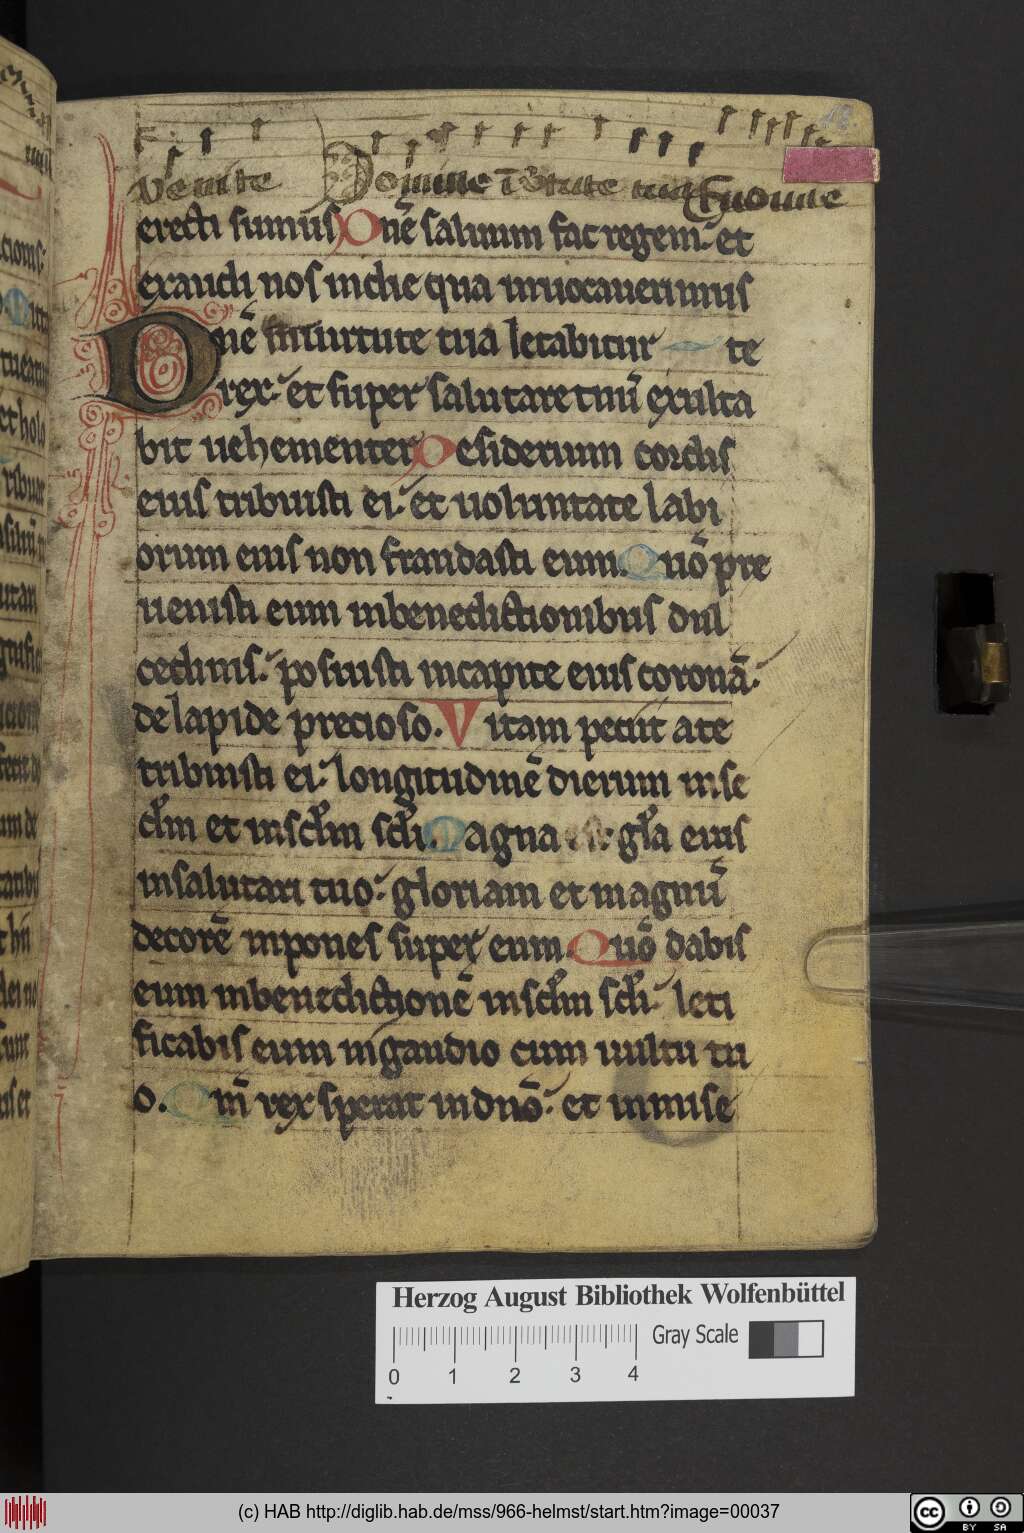 18
venite Domine ī v̓tute tua Euouae
erecti sumus Dnē saluum fac regem: et
exaudi nos in die qua inuocauerimus
Dnē in uirtute tua letabitur te
rex: et super salutare tuū exulta
bit uehementer Desiderium cordis
eius tribuisti ei: et uoluntate labi
orum eius non fraudasti eum. Quō pre
uenisti eum in benedictionibus dul
cedinis: posuisti in capite eius coronā:
de lapide precioso. Vitam peciit a te
tribuisti ei: longitudinē dierum in se
cl̓m et in scl̓m scl̓i. Magna est: gl̓a eius
in salutari tuo: gloriam et magnū
decorē inpones super eum. Quō dabis
eum in benedictionē in scl̓m scl̓i: leti
ficabis eum in gaudio cum uultu tu
o. Qm̄ rex sperat in dnō: et in mise
Herzog August Bibliothek Wolfenbüttel
Gray Scale
0 1 2 3 4
(c) HAB http://diglib.hab.de/mss/966-helmst/start.htm?image=00037
cc BY SA